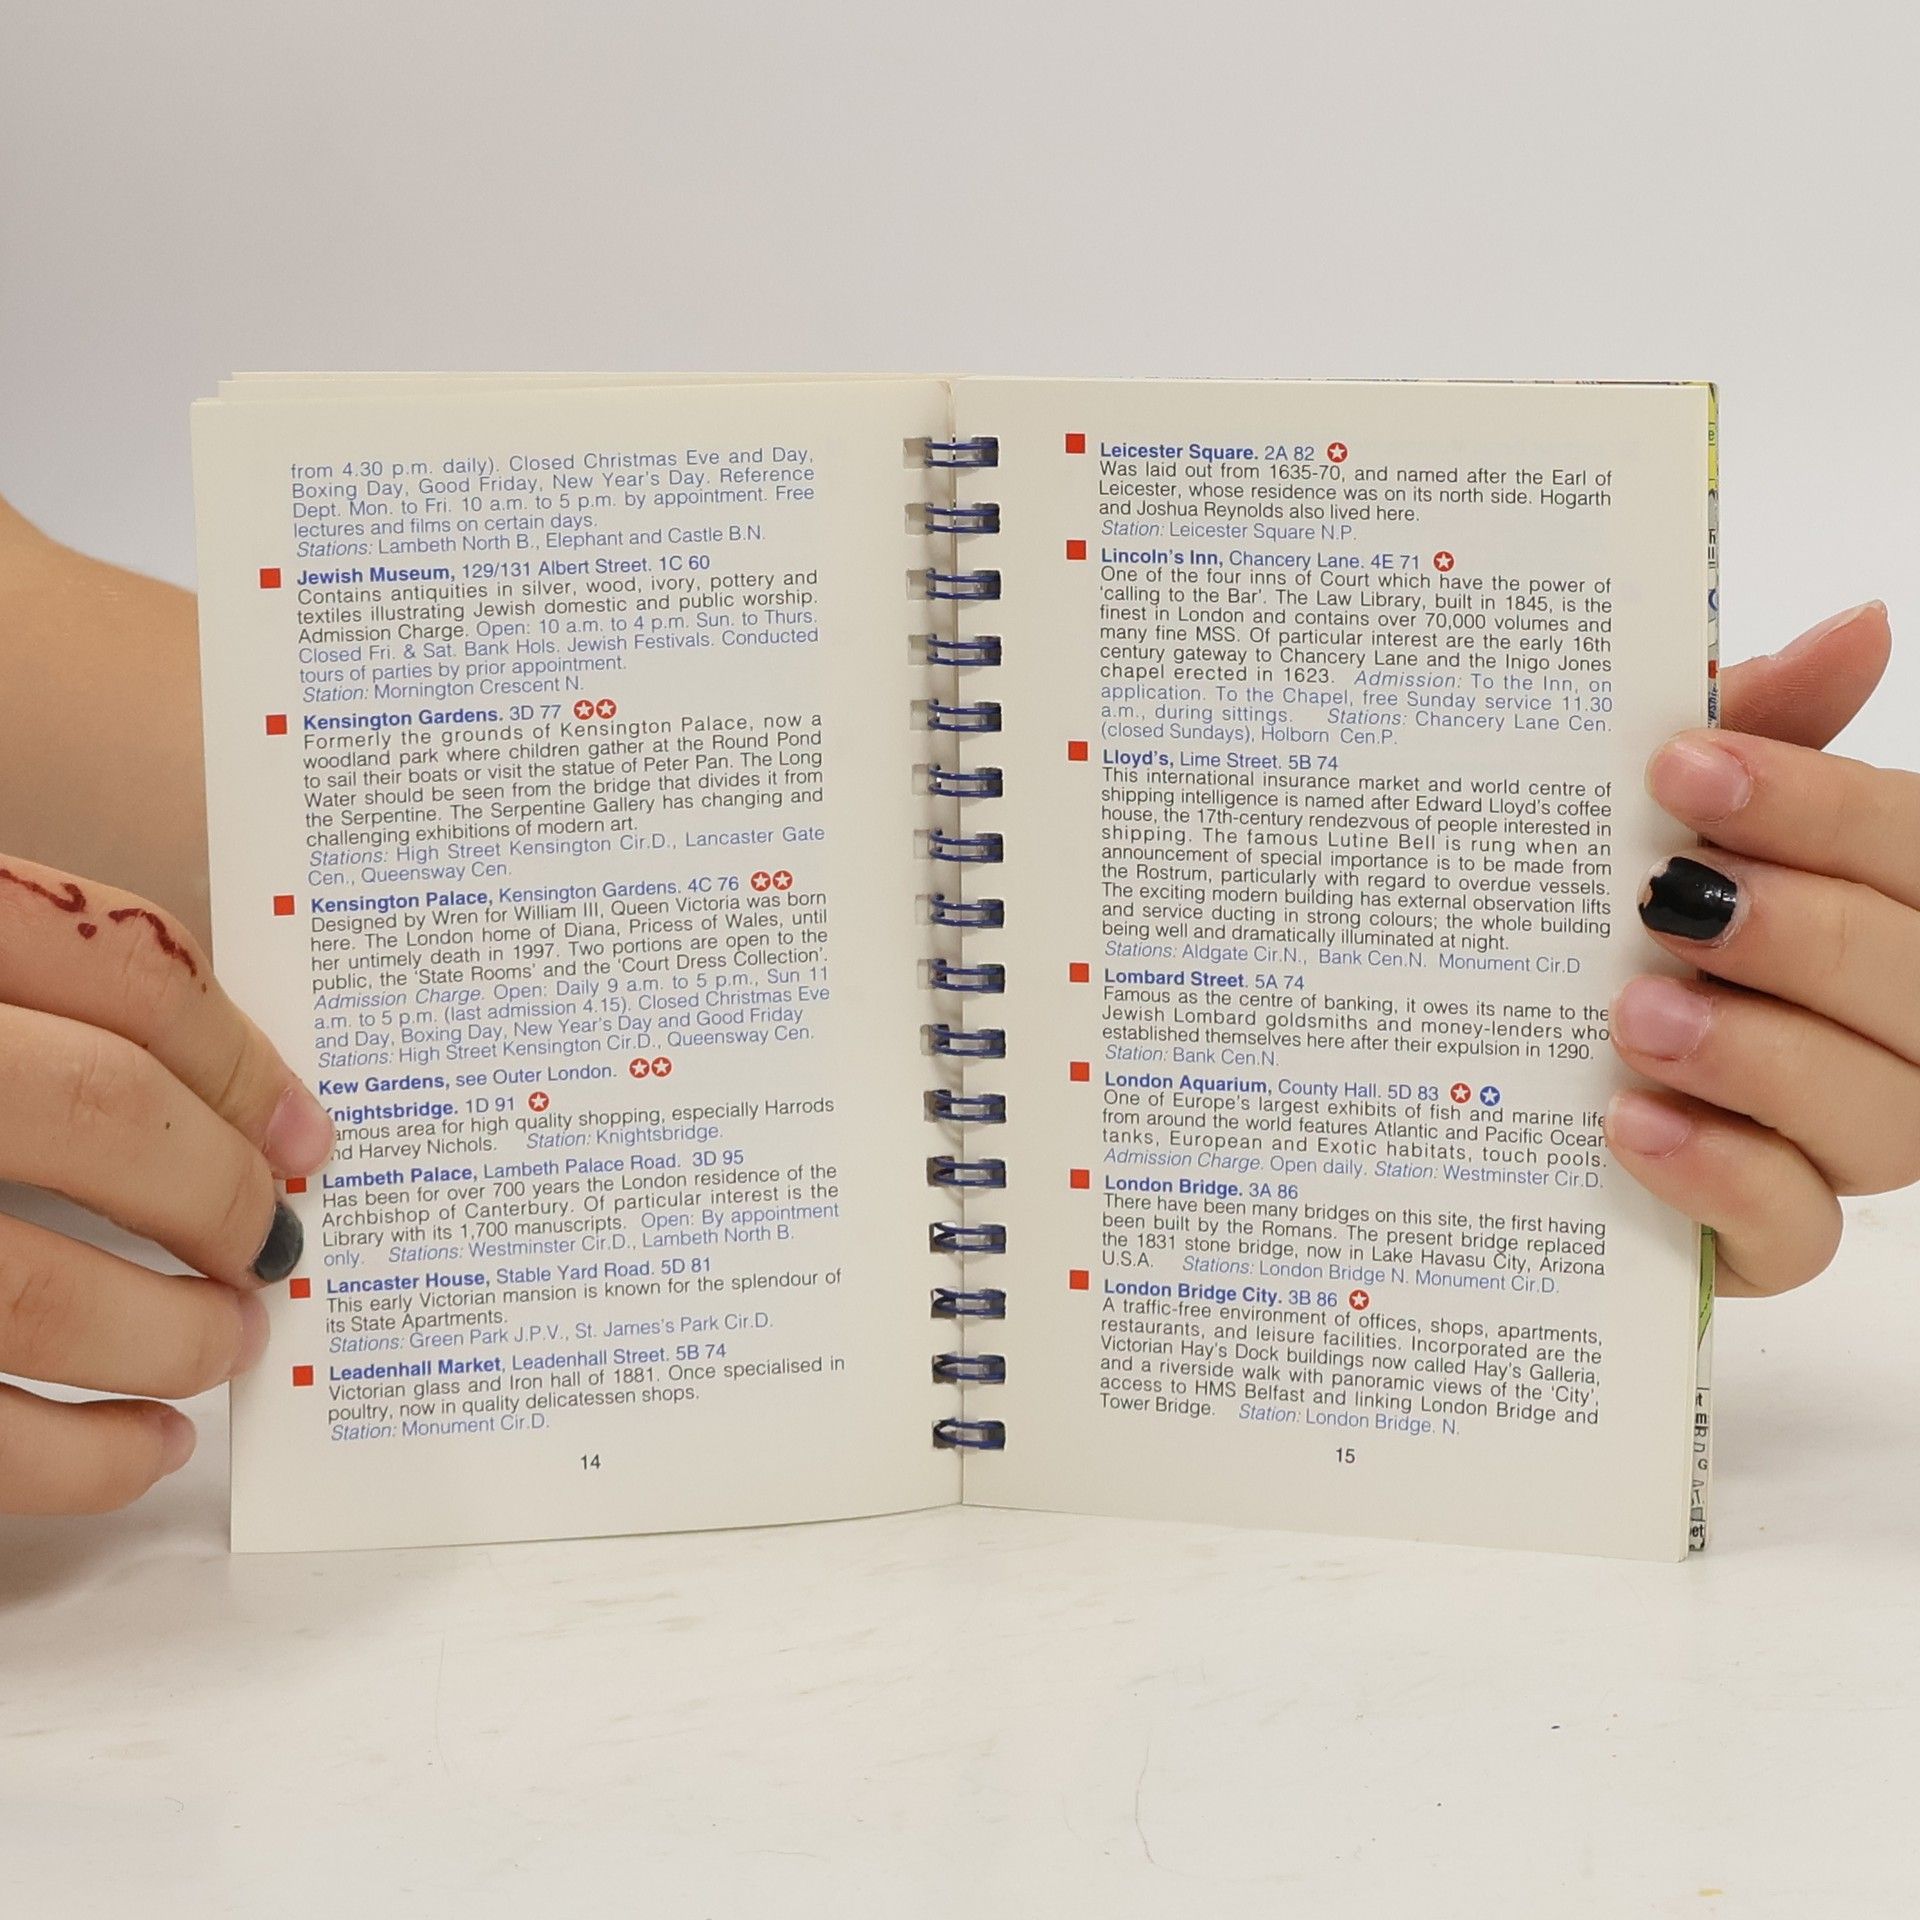 from 4.30 p.m. daily). Closed Christmas Eve and Day,
Boxing Day, Good Friday, New Year's Day. Reference
Dept. Mon. to Fri. 10 a.m. to 5 p.m. by appointment. Free
lectures and films on certain days.
Stations: Lambeth North B., Elephant and Castle B.N.
Jewish Museum, 129/131 Albert Street. 1C 60
Contains antiquities in silver, wood, ivory, pottery and
textiles illustrating Jewish domestic and public worship.
Admission Charge. Open: 10 a.m. to 4 p.m. Sun. to Thurs.
Closed Fri. & Sat. Bank Hols. Jewish Festivals. Conducted
tours of parties by prior appointment.
Station: Mornington Crescent N.
Kensington Gardens. 3D 77
Formerly the grounds of Kensington Palace, now a
woodland park where children gather at the Round Pond
to sail their boats or visit the statue of Peter Pan. The Long
Water should be seen from the bridge that divides it from
the Serpentine. The Serpentine Gallery has changing and
challenging exhibitions of modern art.
Stations: High Street Kensington Cir.D., Lancaster Gate
Cen., Queensway Cen.
Kensington Palace, Kensington Gardens. 4C 76
Designed by Wren for William III, Queen Victoria was born
here. The London home of Diana, Pricess of Wales, until
her untimely death in 1997. Two portions are open to the
public, the 'State Rooms' and the 'Court Dress Collection'.
Admission Charge. Open: Daily 9 a.m. to 5 p.m., Sun 11
a.m. to 5 p.m. (last admission 4.15). Closed Christmas Eve
and Day, Boxing Day, New Year's Day and Good Friday
Stations: High Street Kensington Cir.D., Queensway Cen.
Kew Gardens, see Outer London.
nightsbridge. 1D 91
amous area for high quality shopping, especially Harrods
nd Harvey Nichols. Station: Knightsbridge.
Lambeth Palace, Lambeth Palace Road. 3D 95
Has been for over 700 years the London residence of the
Archbishop of Canterbury. Of particular interest is the
Library with its 1,700 manuscripts. Open: By appointment
only. Stations: Westminster Cir.D., Lambeth North B.
Lancaster House, Stable Yard Road. 5D 81
This early Victorian mansion is known for the splendour of
its State Apartments.
Stations: Green Park J.P.V., St. James's Park Cir.D.
Leadenhall Market, Leadenhall Street. 5B 74
Victorian glass and Iron hall of 1881. Once specialised in
poultry, now in quality delicatessen shops.
Station: Monument Cir.D.
14
Leicester Square. 2A 82
Was laid out from 1635-70, and named after the Earl of
Leicester, whose residence was on its north side. Hogarth
and Joshua Reynolds also lived here.
Station: Leicester Square N.P.
Lincoln's Inn, Chancery Lane. 4E 71
One of the four inns of Court which have the power of
'calling to the Bar'. The Law Library, built in 1845, is the
finest in London and contains over 70,000 volumes and
many fine MSS. Of particular interest are the early 16th
century gateway to Chancery Lane and the Inigo Jones
chapel erected in 1623. Admission: To the Inn, on
application. To the Chapel, free Sunday service 11.30
a.m., during sittings. Stations: Chancery Lane Cen.
(closed Sundays), Holborn Cen.P.
Lloyd's, Lime Street. 5B 74
This international insurance market and world centre of
shipping intelligence is named after Edward Lloyd's coffee
house, the 17th-century rendezvous of people interested in
shipping. The famous Lutine Bell is rung when an
announcement of special importance is to be made from
the Rostrum, particularly with regard to overdue vessels.
The exciting modern building has external observation lifts
and service ducting in strong colours; the whole building
being well and dramatically illuminated at night.
Stations: Aldgate Cir.N., Bank Cen.N. Monument Cir.D
Lombard Street. 5A 74
Famous as the centre of banking, it owes its name to the
Jewish Lombard goldsmiths and money-lenders who
established themselves here after their expulsion in 1290.
Station: Bank Cen.N.
London Aquarium, County Hall. 5D 83
One of Europe's largest exhibits of fish and marine life
from around the world features Atlantic and Pacific Ocean
tanks, European and Exotic habitats, touch pools.
Admission Charge. Open daily. Station: Westminster Cir.D.
London Bridge. 3A 86
There have been many bridges on this site, the first having
been built by the Romans. The present bridge replaced
the 1831 stone bridge, now in Lake Havasu City, Arizona
U.S.A. Stations: London Bridge N. Monument Cir.D.
London Bridge City. 3B 86
A traffic-free environment of offices, shops, apartments,
restaurants, and leisure facilities. Incorporated are the
Victorian Hay's Dock buildings now called Hay's Galleria,
and a riverside walk with panoramic views of the 'City',
access to HMS Belfast and linking London Bridge and
Tower Bridge. Station: London Bridge. N.
15